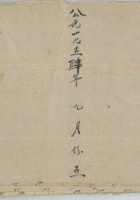 公元一九五肆年 九月份立